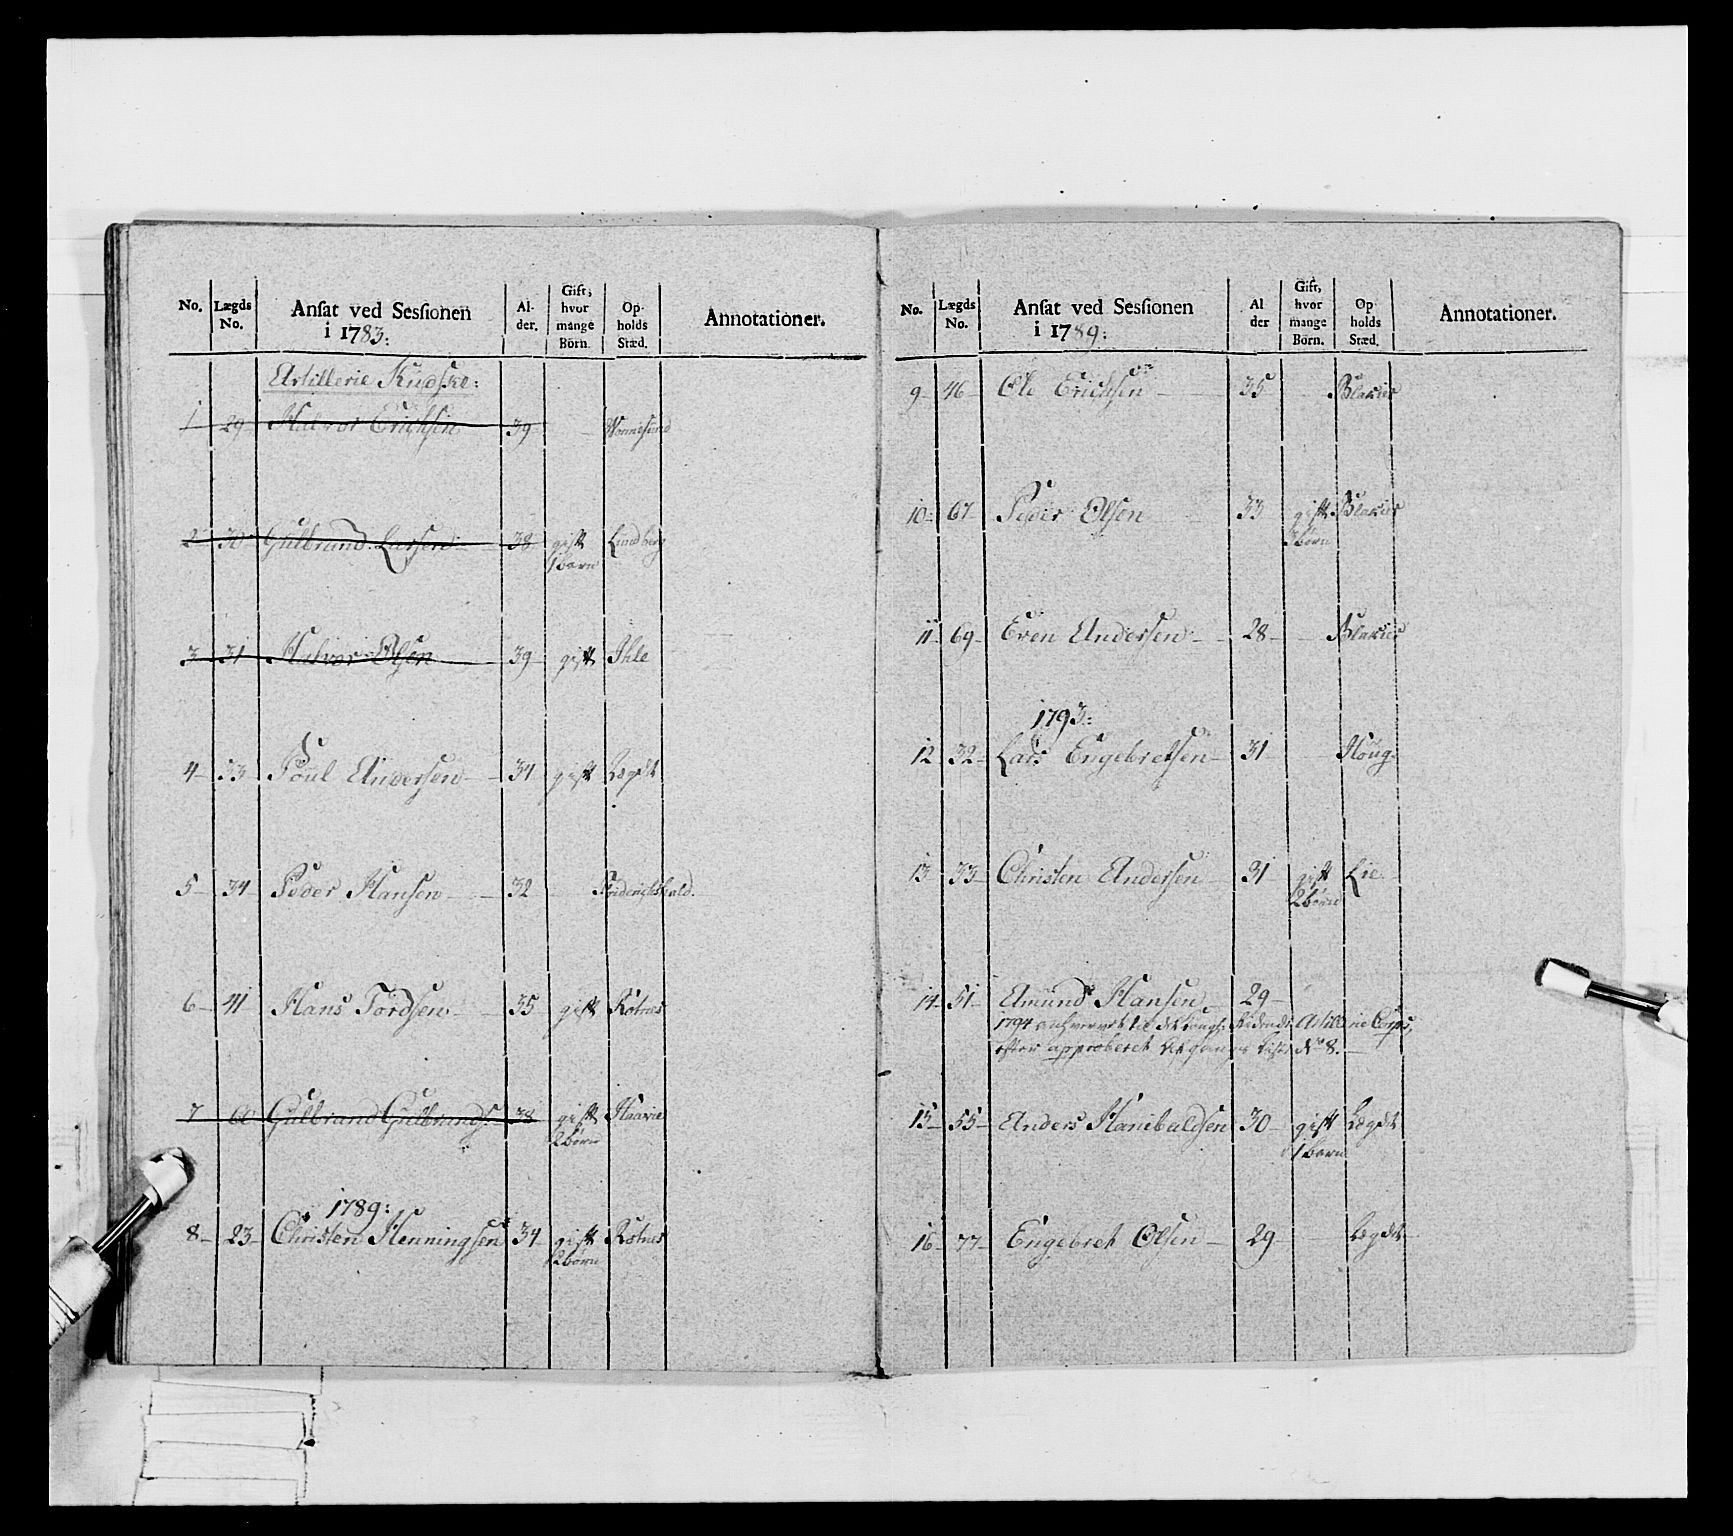 No. Lægds No. Ansat ved Sessionen i 1783: Al- der. Gift, hvor mange Börn. Op- holds Stæd. Annotationer.
Artillerie Kudske:
1 29 Halvor Erichsen 39 – Wormsund
2 30 Gulbrand Larsen 38 gift 1 barn Lundberg
3 31 Halvor Olsen 39 gift Ihle
4 33 Poul Andersen 34 gift Lægdet
5 34 Peder Hansen 32 – Friderichshald.
6 41 Hans Tordsen 35 gift Rotnes
7 60 Gulbrand Gulbrands. 38 gift 2 børn Haavie
1789:
8 23 Christen Henningsen 34 gift 2 børn Rotnes
No. Lægds No. Ansat ved Sessionen i 1789: Al der Gift, hvor mange Börn. Op holds Stæd. Annotationer.
9 46 Ole Erichsen 35 – Blakier
10 67 Peder Olsen 33 gift 3 børn Blakier
11 69 Even Andersen 28 – Blakier
1793:
12 32 Lars Engebretsen 31 – Houg
13 33 Christen Andersen 31 gift 2 børn Lie
14 51 Amund Hansen 29
1794 til det Artillerie Corps,
efter approberet No 8.
15 55 Anders Hanibaldsen 30 gift 1 barn Lægdet
16 77 Engebret Olsen 29 – Lægdet